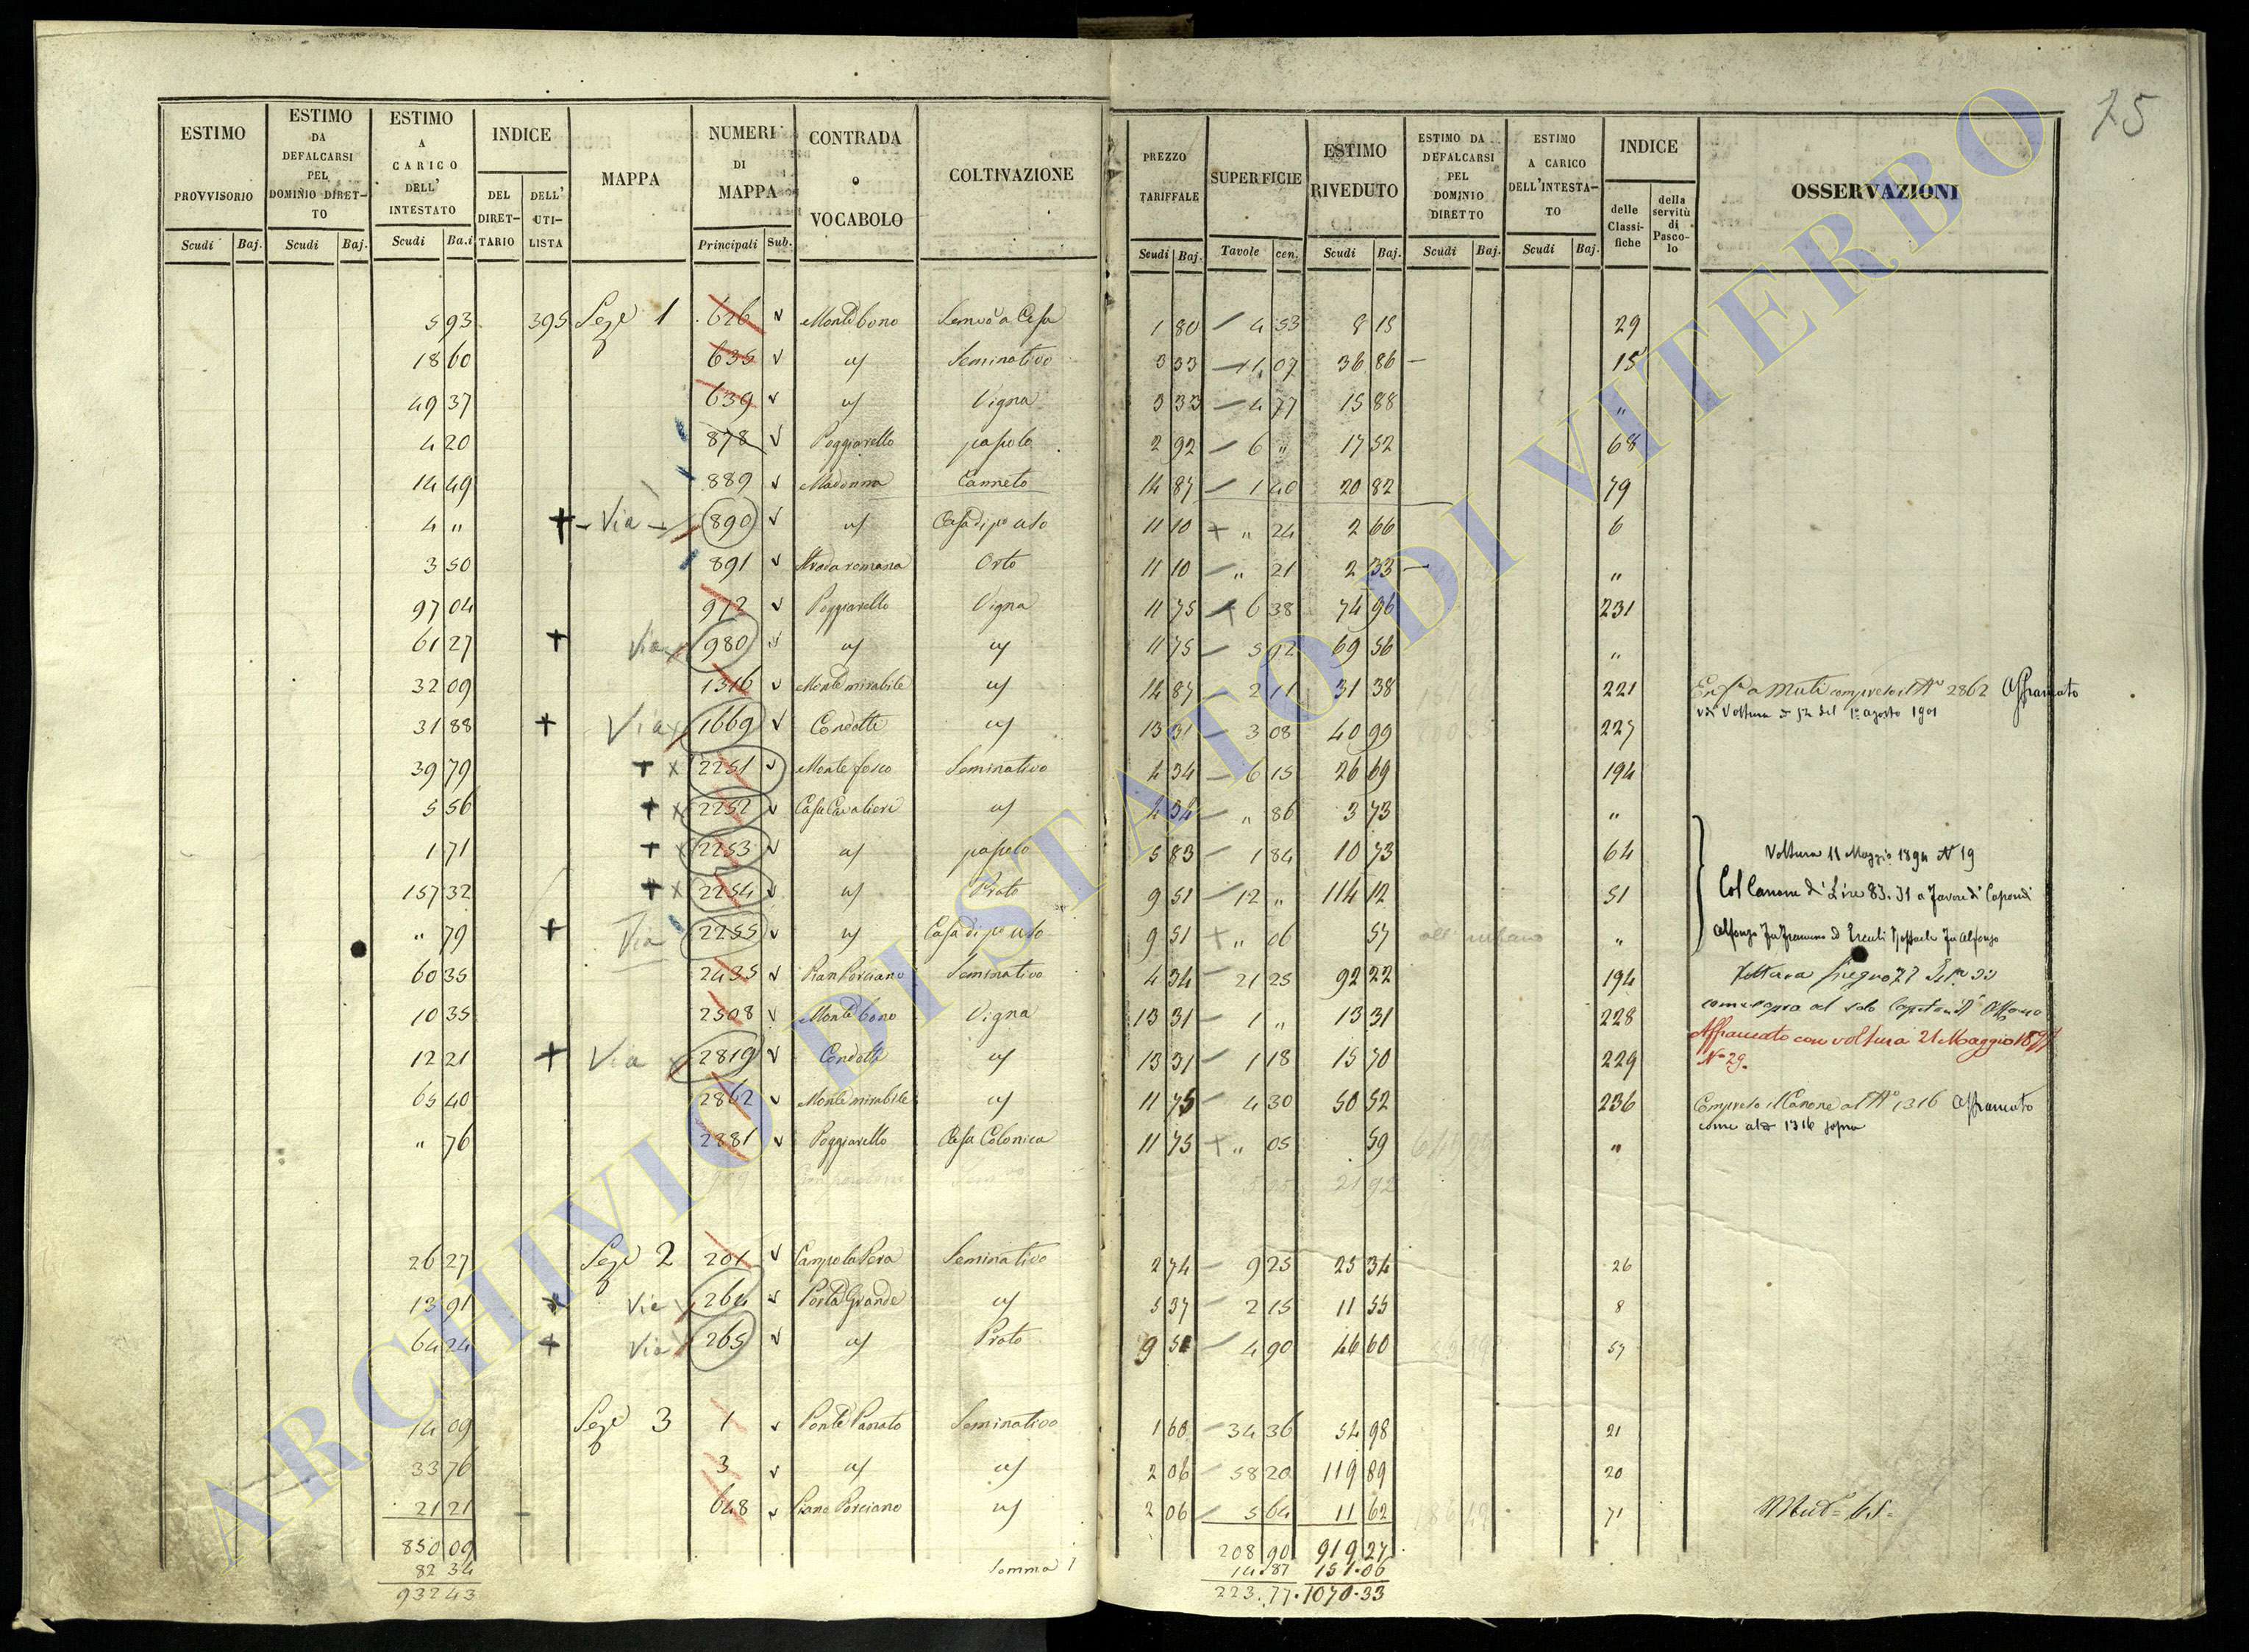 75
ESTIMO PROVVISORIO | ESTIMO DA DEFALCARSI PEL DOMINIO DIRETTO | ESTIMO A CARICO DELL' INTESTATO | INDICE | MAPPA | NUMERI DI MAPPA | CONTRADA o VOCABOLO | COLTIVAZIONE | PREZZO TARIFFALE | SUPERFICIE | ESTIMO RIVEDUTO | ESTIMO DA DEFALCARSI PEL DOMINIO DIRETTO | ESTIMO A CARICO DELL'INTESTATO | INDICE | OSSERVAZIONI
DEL DIRETTARIO | DELL' UTILISTA | delle Classifiche | della servitù di Pascolo
Scudi | Baj. | Scudi | Baj. | Scudi | Ba.i | Principali | Sub. | Scudi | Baj. | Tavole | cen. | Scudi | Baj. | Scudi | Baj. | Scudi | Baj.
5 93 | 395 | Sez.e 1 | 626 | Monte bono | 1 80 | 4 53 | 8 15 | 29
18 60 | 635 | Seminativo | 3 33 | 11 07 | 36 86 | 15
49 37 | 639 | Vigna | 3 33 | 4 77 | 15 88 | "
4 20 | 878 | Poggiarello | pascolo | 2 92 | 6 " | 17 52 | 68
14 49 | 889 | Madonna | Canneto | 14 87 | 1 40 | 20 82 | 79
4 " | + Via | 890 | Casa di po uso | 11 10 | " 24 | 2 66 | 6
3 50 | 891 | Strada romana | Orto | 11 10 | " 21 | 2 33 | "
97 04 | 972 | Poggiarello | Vigna | 11 75 | 6 38 | 74 96 | 231
61 27 | + Via | 980 | 11 75 | 5 92 | 69 56 | "
32 09 | 1316 | Monte mirabile | 14 87 | 2 11 | 31 38 | 221 | compreso il No 2862 Affrancato
del 1o agosto 1901
31 88 | + Via | 1669 | Condotti | 13 31 | 3 08 | 40 99 | 227
39 79 | + x | 2251 | Monte fosco | Seminativo | 4 34 | 6 15 | 26 69 | 194
5 56 | + x | 2252 | Casa Cavalieri | 4 34 | " 86 | 3 73 | "
1 71 | + x | 2253 | pascolo | 5 83 | 1 84 | 10 73 | 64 | Voltura 11 Maggio 1894 N 19
157 32 | + x | 2254 | Prato | 9 51 | 12 " | 114 12 | 51 | Col Canone di Lire 83.31 a favore di
" 79 | + Via | 2255 | Casa di po uso | 9 51 | " 06 | 57 | all'urbano | "
60 35 | 2435 | Pian Porciano | Seminativo | 4 34 | 21 25 | 92 22 | 194
10 35 | 2508 | Monte bono | Vigna | 13 31 | 1 " | 13 31 | 228
Affrancato con voltura 21 Maggio 1897
No 29.
12 21 | + Via | 2819 | Condotti | 13 31 | 1 18 | 15 70 | 229
65 40 | 2862 | Monte mirabile | 11 75 | 4 30 | 50 52 | 236 | Compreso il Canone al No 1316 Affrancato
come al 1316 sopra
" 76 | 2881 | Poggiarello | Casa Colonica | 11 75 | " 05 | 59 | "
26 27 | Sez.e 2 | 201 | Campo la Pera | Seminativo | 2 74 | 9 25 | 25 34 | 26
13 91 | Via | 264 | Porta Grande | 5 37 | 2 15 | 11 55 | 8
64 24 | + Via | 265 | Prato | 9 51 | 4 90 | 46 60 | 57
14 09 | Sez.e 3 | 1 | Seminativo | 1 60 | 34 36 | 54 98 | 21
33 76 | 3 | 2 06 | 58 20 | 119 89 | 20
21 21 | 648 | Piano Porciano | 2 06 | 5 64 | 11 62 | 71
850 09 | 208 90 | 919 27
82 34 | Somma | 14.87 | 151.06
932 43 | 223.77 | 1070.33
ARCHIVIO DI STATO DI VITERBO